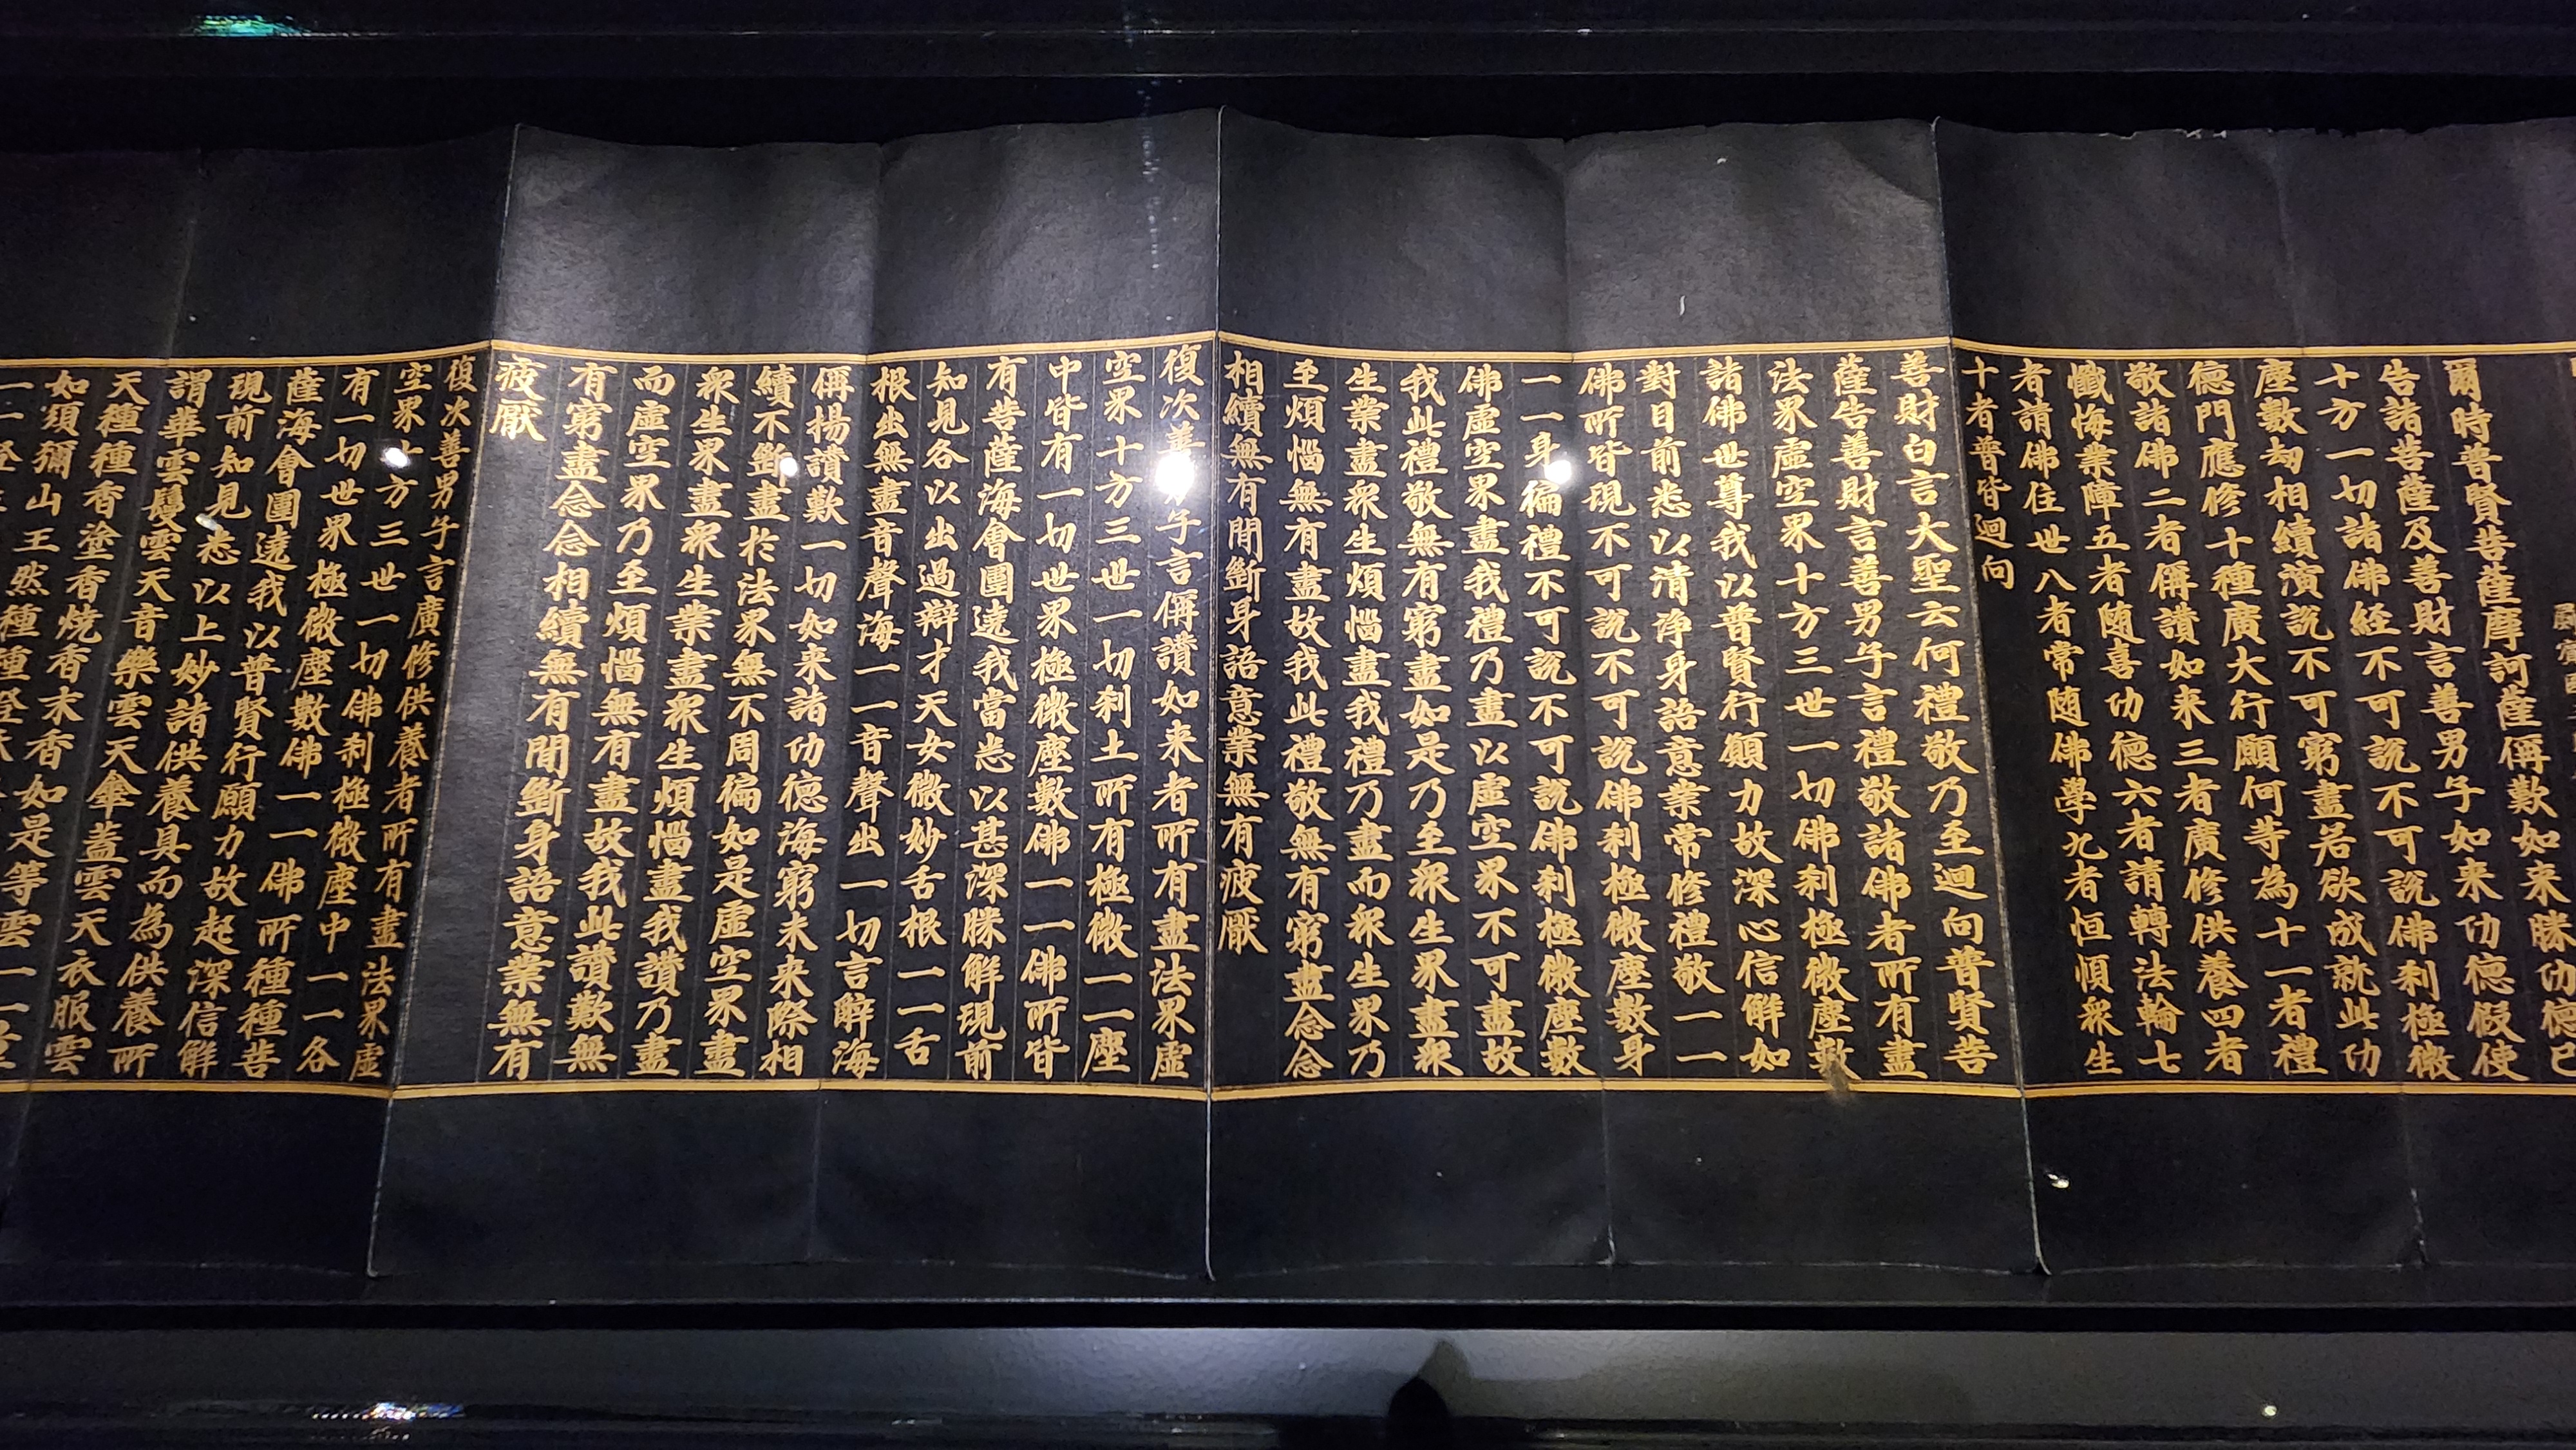 爾時普賢菩薩摩訶薩稱歎如來勝功德已
告諸菩薩及善財言善男子如來功德假使
十方一切諸佛經不可說不可說佛刹極微
塵數劫相續演說不可窮盡若欲成就此功
德門應修十種廣大行願何等為十一者禮
敬諸佛二者稱讚如来三者廣修供養四者
懺悔業障五者隨喜功德六者請轉法輪七
者請佛住世八者常隨佛學九者恒順衆生
十者普皆迴向
善財白言大聖云何禮敬乃至迴向普賢菩
薩告善財言善男子言禮敬諸佛者所有盡
法界虛空界十方三世一切佛刹極微塵數
諸佛世尊我以普賢行願力故深心信解如
對目前悉以清淨身語意業常修禮敬一一
佛所皆現不可說不可說佛刹極微塵數身
一一身徧禮不可說不可說佛刹極微塵數
佛虛空界盡我禮乃盡以虛空界不可盡故
我此禮敬無有窮盡如是乃至衆生界盡衆
生業盡衆生煩惱盡我禮乃盡而衆生界乃
至煩惱無有盡故我此禮敬無有窮盡念念
相續無有間斷身語意業無有疲厭
復次善子言稱讚如来者所有盡法界虛
空界十方三世一切刹土所有極微一一塵
中皆有一切世界極微塵數佛一一佛所皆
有菩薩海會圍遶我當悉以甚深勝解現前
知見各以出過辯才天女微妙舌根一一舌
根出無盡音聲海一一音聲出一切言辭海
稱揚讚歎一切如来諸功德海窮未来際相
續不斷盡於法界無不周徧如是虛空界盡
衆生界盡衆生業盡衆生煩惱盡我讚乃盡
而虛空界乃至煩惱無有盡故我此讚歎無
有窮盡念念相續無有間斷身語意業無有
疲厭
復次善男子言廣修供養者所有盡法界虛
空界十方三世一切佛刹極微塵中一一各
有一切世界極微塵數佛一一佛所種種菩
薩海會圍遶我以普賢行願力故起深信解
現前知見悉以上妙諸供養具而為供養所
謂華雲鬘雲天音樂雲天傘蓋雲天衣服雲
天種種香塗香燒香末香如是等雲一一
如須彌山王然種種